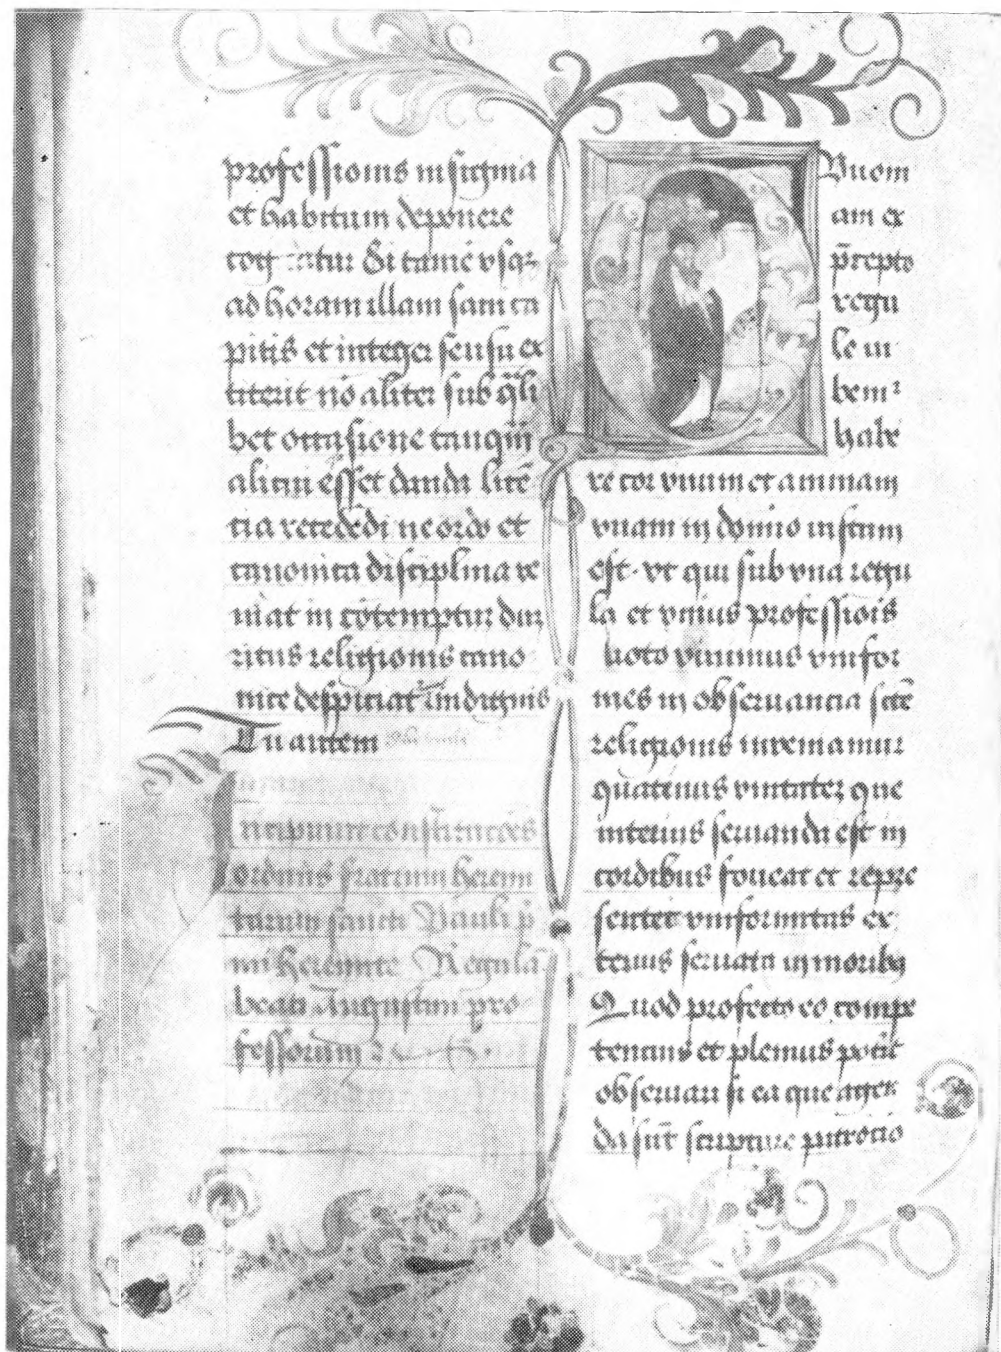 professionis insignia
et habitum deponere
cog atur Si tamē vsq;
ad horam illam sani ca
pitis et integer sensu ex
titerit nō aliter sub q̄li
bet occasione tanq̄m
alicui esset danda licē
tia recedēdi ne ordo et
canonica disciplina ve
niat in cōtemptum dur
ritas religionis cano
nice despiciat indignis
Tu autem
Incipiunt constitucōes
ordinis fratrum heremi
tarum sancti Pauli p̄
mi heremite Regulā
beati Augustini pro
fessorum
Quoni
am ex
p̄cepto
regu
le iu
bemr
habe
re cor vnum et animam
vnam in domino iustum
est. vt qui sub vna regu
la et vnius professiois
voto viuimus vnifor
mes in obseruancia scē
religionis inueniamur
quatinus vnitatez que
interius seruanda est in
cordibus foueat et repre
sentet vniformitas ex
terius seruata in moribꝫ
Quod profecto eo compe
tencius et plenius potēt
obseruari si ea que agen
da sūt scripture patrocio